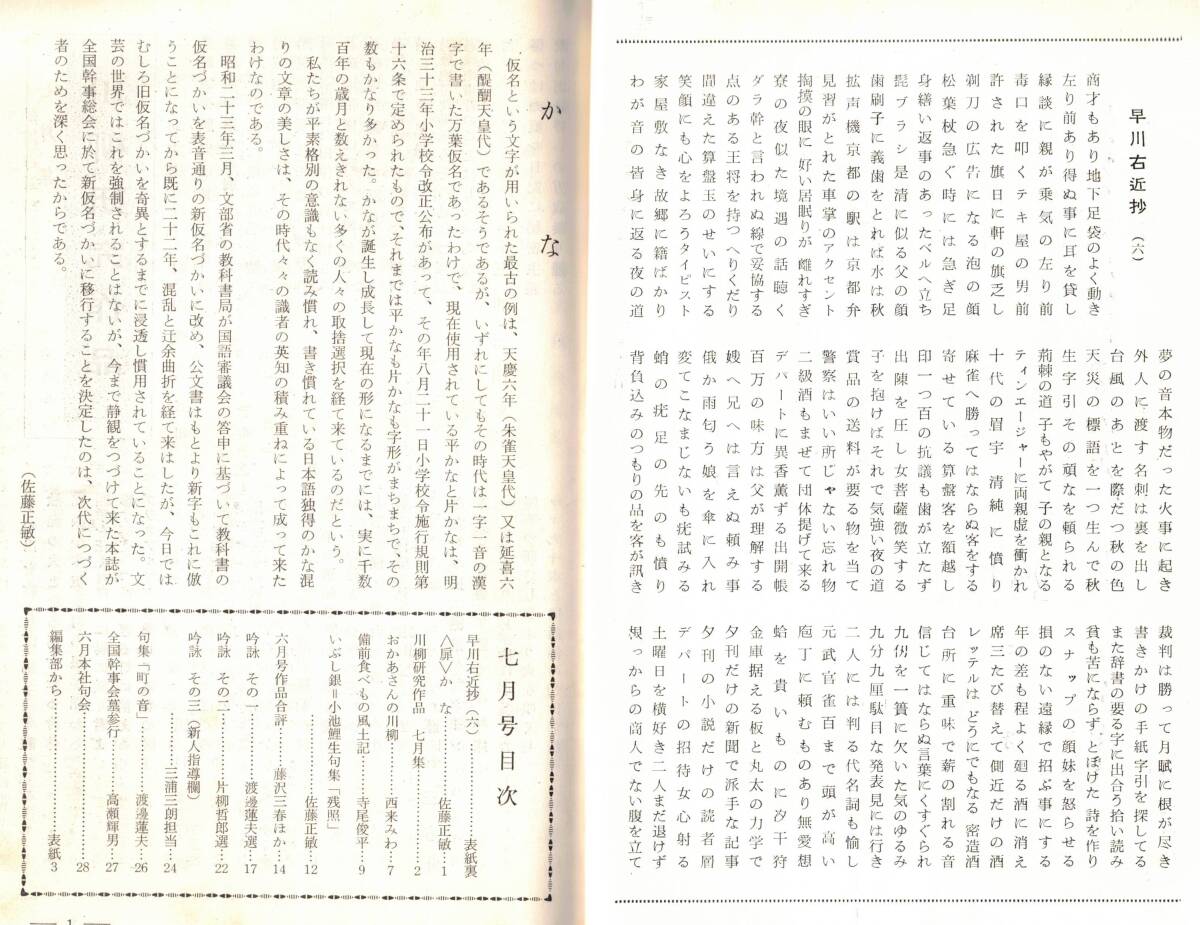 早川右近抄 (六)
商才もあり地下足袋のよく動き
左り前あり得ぬ事に耳を貸し
縁談に親が乗気の左り前
毒口を叩くテキ屋の男前
許された旗日に軒の旗乏し
剃刀の広告になる泡の顔
松葉杖急ぐ時には急ぎ足
身繕い返事のあったベルへ立ち
髭ブラシ是清に似る父の顔
歯刷子に義歯をとれば水は秋
拡声機京都の駅は京都弁
見習がとれた車掌のアクセント
掏摸の眼に好い居眠りが離れすぎ
寮の夜似た境遇の話聴く
ダラ幹と言われぬ線で妥協する
点のある王将を持つへりくだり
間違えた算盤玉のせいにする
笑顔にも心をよろうタイピスト
家屋敷なき故郷に籍ばかり
わが音の皆身に返る夜の道
夢の音本物だった火事に起き
外人に渡す名刺は裏を出し
台風のあとを際だつ秋の色
天災の標語を一つ生んで秋
生字引その頑なを頼られる
荊棘の道子もやがて子の親となる
ティンエージャーに両親虚を衝かれ
十代の眉宇清純に憤り
麻雀へ勝ってはならぬ客をする
寄せている算盤客を額越し
印一つ百の抗議も歯が立たず
出陳を圧し女菩薩微笑する
子を抱けばそれで気強い夜の道
賞品の送料が要る物を当て
警察はいい所じゃない忘れ物
二級酒もまぜて団体提げて来る
デパートに異香薫ずる出開帳
百万の味方は父が理解する
嫂へ兄へは言えぬ頼み事
俄か雨匂う娘を傘に入れ
変てこなまじないも疣試みる
蛸の疣足の先のも憤り
背負込みのつもりの品を客が訊き
裁判は勝って月賦に根が尽き
書きかけの手紙字引を探してる
また辞書の要る字に出合う拾い読み
貧も苦にならずとぼけた詩を作り
スナップの顔妹を怒らせる
損のない遠縁で招ぶ事にする
年の差も程よく廻る酒に消え
席三たび替えて側近だけの酒
レッテルはどうにでもなる密造酒
台所に重味で薪の割れる音
信じてはならぬ言葉にくすぐられ
九仭を一簣に欠いた気のゆるみ
九分九厘駄目な発表見には行き
二人には判る代名詞も愉し
元武官雀百まで頭が高い
庖丁に頼むものあり無愛想
蛤を貴いものに汐干狩
金庫据える板と丸太の力学で
夕刊だけの新聞で派手な記事
夕刊の小説だけの読者層
デパートの招待女心射る
土曜日を横好き二人まだ退けず
根っからの商人でない腹を立て
かな
仮名という文字が用いられた最古の例は、天慶六年(朱雀天皇代)又は延喜六
年(醍醐天皇代)であるそうであるが、いずれにしてもその時代は一字一音の漢
字で書いた万葉仮名であったわけで、現在使用されている平かなと片かなは、明
治三十三年小学校令改正公布があって、その年八月二十一日小学校令施行規則第
十六条で定められたもので、それまでは平かなも片かなも字形がまちまちで、その
数もかなり多かった。かなが誕生し成長して現在の形になるまでには、実に千数
百年の歳月と数えきれない多くの人々の取捨選択を経て来ているのだという。
私たちが平素格別の意識もなく読み慣れ、書き慣れている日本語独得のかな混
りの文章の美しさは、その時代々々の識者の英知の積み重ねによって成って来た
わけなのである。
昭和二十三年三月、文部省の教科書局が国語審議会の答申に基づいて教科書の
仮名づかいを表音通りの新仮名づかいに改め、公文書はもとより新字もこれに倣
うことになってから既に二十二年、混乱と迂余曲折を経て来はしたが、今日では
むしろ旧仮名づかいを奇異とするまでに浸透し慣用されていることになった。文
芸の世界ではこれを強制されることはないが、今まで静観をつづけて来た本誌が
全国幹事総会に於て新仮名づかいに移行することを決定したのは、次代につづく
者のためを深く思ったからである。
(佐藤正敏)
七月号目次
早川右近抄(六)……………表紙裏
〈扉〉かな……………佐藤正敏…1
川柳研究作品 七月集……………2
おかあさんの川柳………西来みわ…7
備前食べもの風土記………寺尾俊平…9
いぶし銀=小池鯉生句集「残照」
……………佐藤正敏…12
六月号作品合評……藤沢三春ほか…14
吟詠 その一……………渡邊蓮夫選…17
吟詠 その二……………片柳哲郎選…22
吟詠 その三(新人指導欄)
……………三浦三朗担当…24
句集「町の音」……………渡邊蓮夫…26
全国幹事会墓参行………高瀬輝男…27
六月本社句会……………28
編集部から……………表紙3
— 1 —